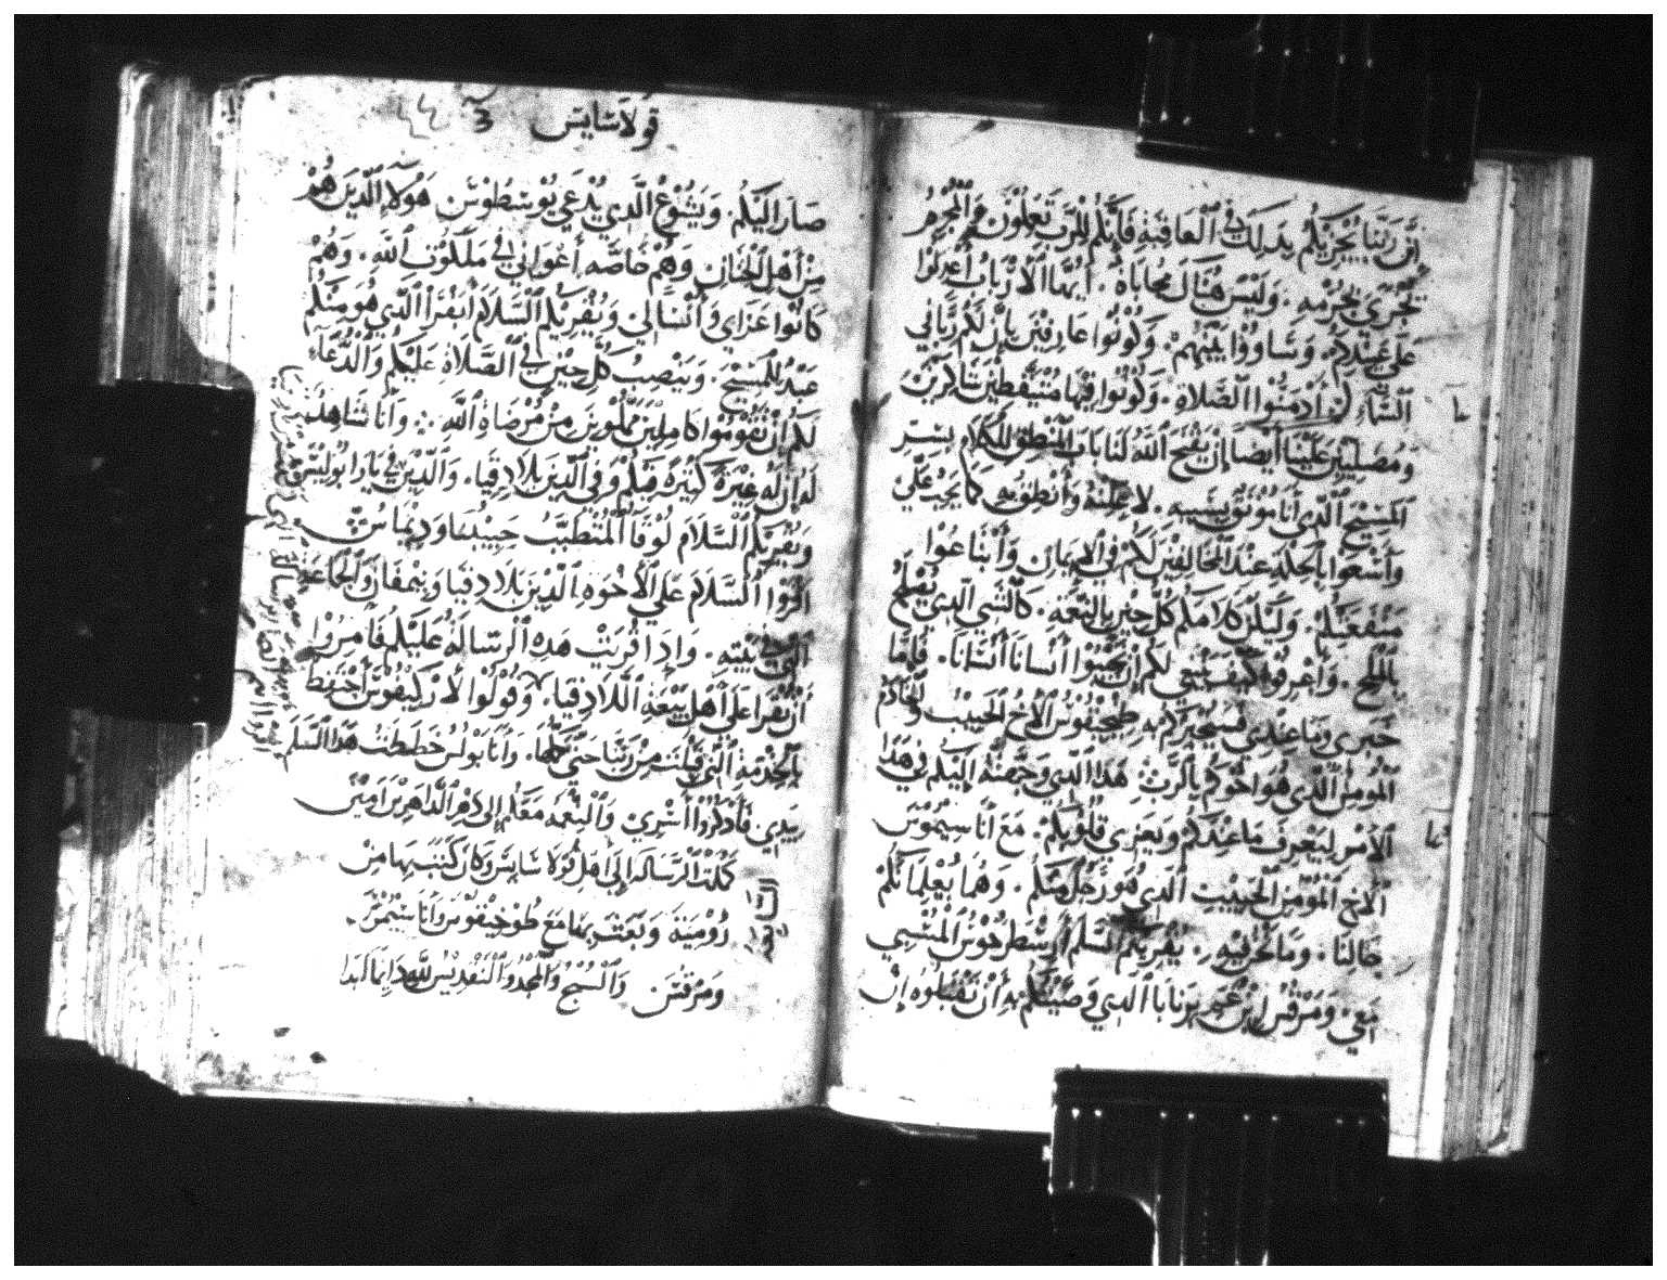 أن ربنا يجزيكم بذلك في العاقبة فإنكم للرب تعملون والمجرم
يجزي بجرمه. وليس هناك محاباة. أيها الأرباب اعدلوا
على عبيدكم. وساووا بينهم. وكونوا عارفين بأن لكم رباً في
السماء أدمنوا الصلاة. وكونوا فيها متيقظين شاكرين
ومصليين علينا أيضا إن يفتح الله لنا باب المنطق للكلام بسر
المسيح الذي أنا موثوق بسببه. لأعلنه وأنطق به كما يجب علي
واسعوا بالحكمة عند المخالفين لكم في الايمان وابتاعوا
منفعتكم. وليكن كلامكم كل حين بالنعمة. كالشي الذي يصلح
بالملح. واعرفوا كيف ينبغي لكم أن تجيبوا أنسانا أنسانا. فأما
خبري وما عندي فسيخبركم به طيخيقوس الأخ الحبيب والخادم
المومن الذي هو اخوكم بالرب هذا الذي وجهته إليكم في هذا
الأمر ليعرف ما عندكم ويعزي قلوبكم. مع أناسيموس
الأخ المومن الحبيب الذي هو رجل منكم. وهما يعلمانكم
حالنا. وما نحن فيه. يقريكم السلم أرسطرخوس المسبي
معي. ومرقس ابن عم برنابا الذي وصيتكم به أن تقبلوه إن
قولاسايس 3
صار اليكم. ويشوع الذي يدعي يوسطوس هولا الذين هم
من أهل الختان وهم خاصه أعواني في ملكوت الله. وهم
كانوا عزاي وأنسا لي ويقريكم السلام أبفرا الذي هو منكم
عبد للمسيح. وينصب كل حين في الصلاة عليكم والدعاء
لكم أن تقوموا كاملين مملوين من مرضاة الله. وأنا شاهد
له أن له غيرة كثيرة فيكم وفي الذين بلادقيا. والذين في يارابوليس
ويقريكم السلام لوقا المتطبب حبيبنا وديماس
اقروا السلام علي الأخوه الذين بلادقيا ونيمفان والجماعة
التي في بيته. وإذا قريت هذه الرسالة عليكم فأمروا
أن تقرا على أهل بيعة اللادقيا. وقولوا لأركيفوس احتفظ
بالخدمة التي قبلت من ربنا حتي تكملها. وأنا بولس خططت هذا السلم
بيدي فأذكروا أسري والنعمه معكم إلى دهر الداهرين امين
كملت الرساله إلى اهل قولاسايس وكان كتب بها من
رومية وبعث بها مع طوخيقوس وأناسيمس
ومرقس والسبح والمجد والتقديس لله دايما ابدا